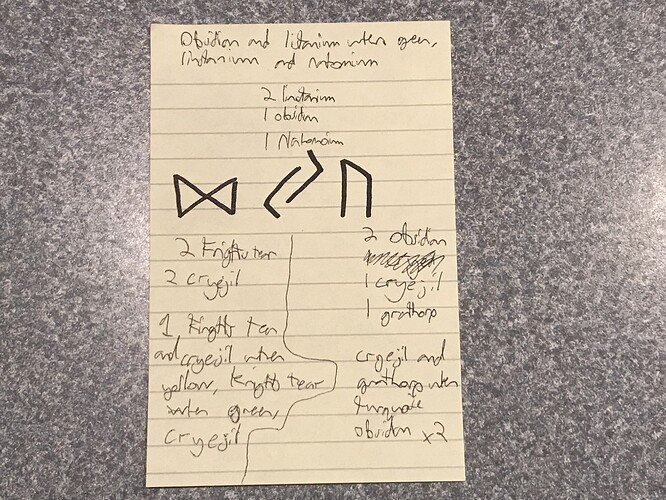 Obsidian and litanium when green,
linotanium and natomium
2 linotarium
1 obsidian
1 Natomium
ᛞ ᛃ ᚢ
2 Knights tear
2 cryejil
1 Knights tear
and cryejil when
yellow, knights tear
when green,
cryejil
2 obsidian
1 cryejil
1 grathorp
cryejil and
grathorp when
turquoise
obsidian x2